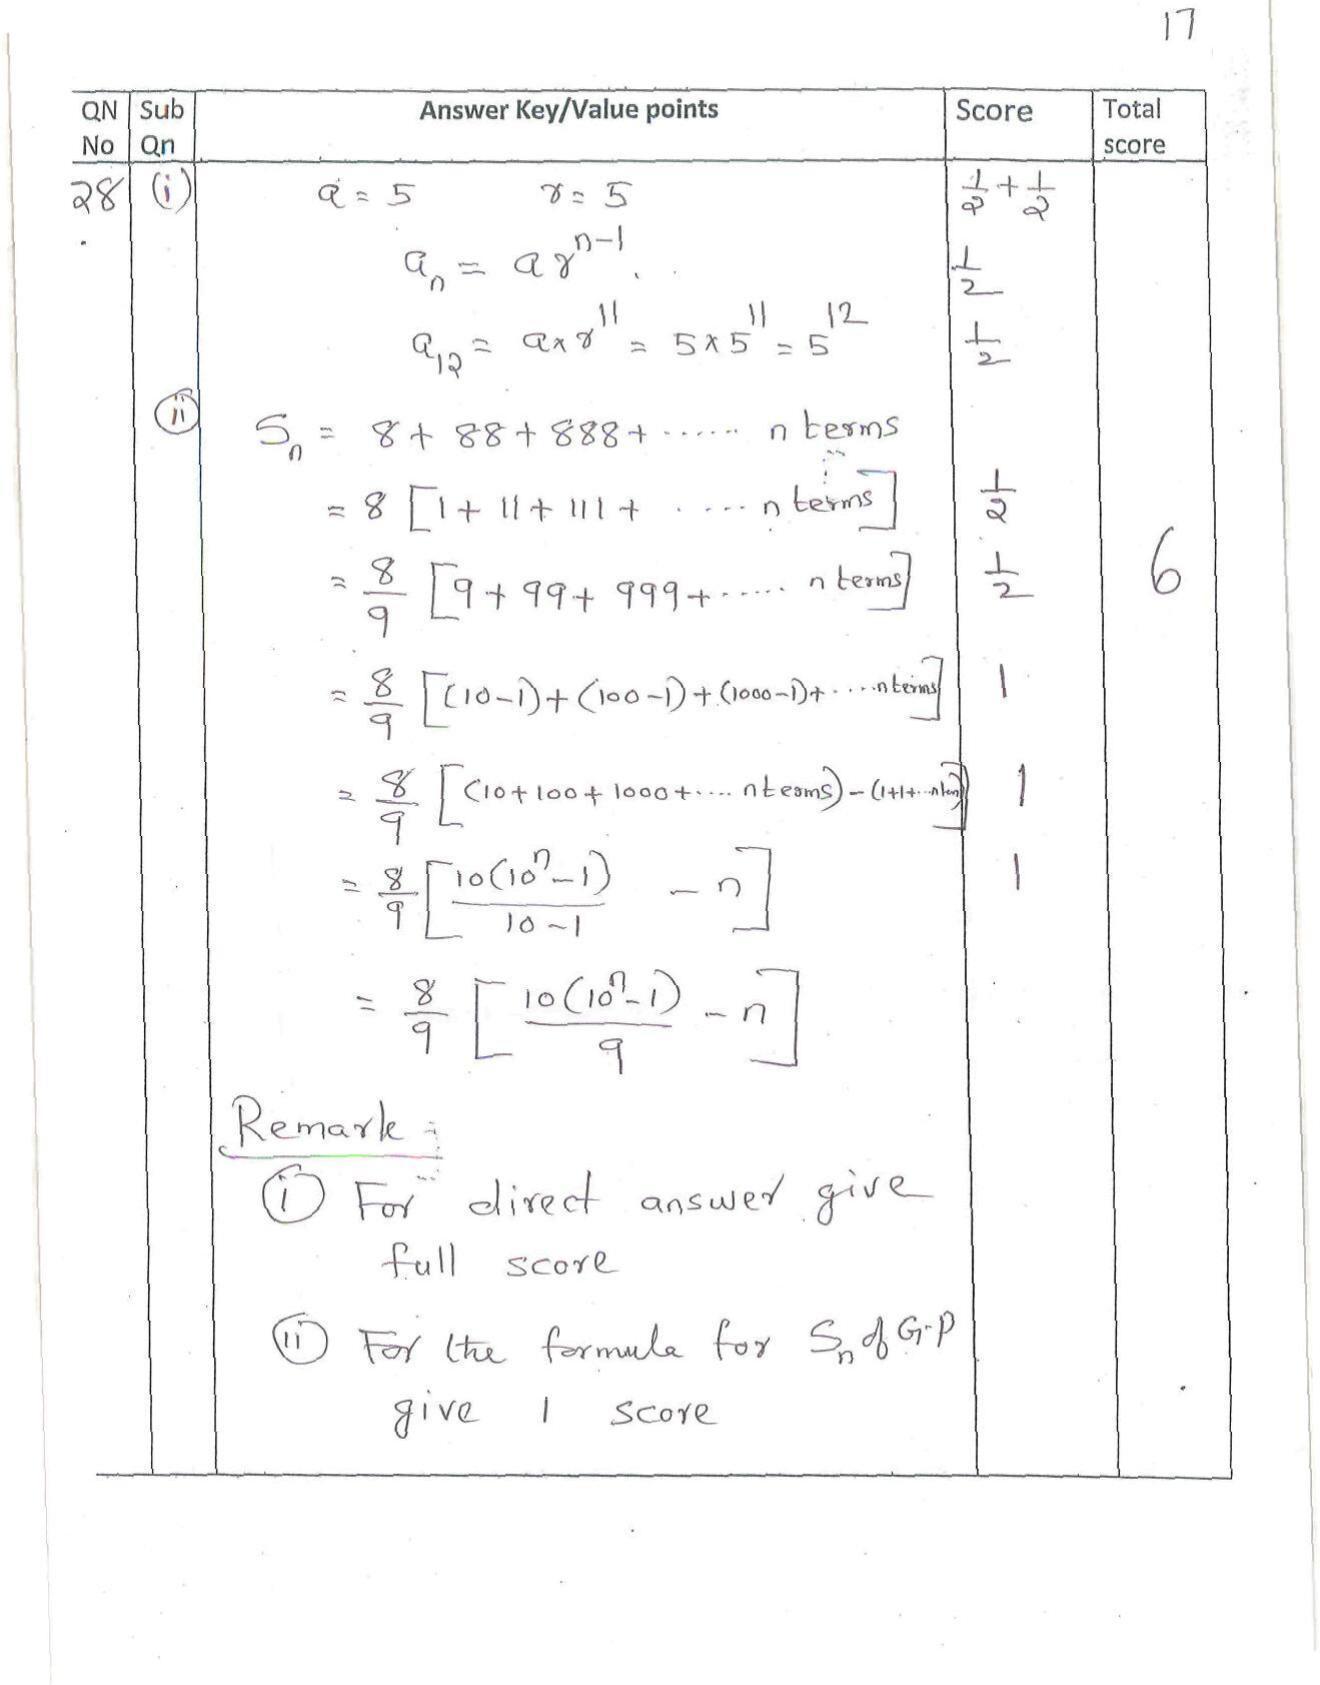 17
QN No Sub Qn Answer Key/Value points Score Total score
28 (i) a = 5 r = 5 1/2 + 1/2
aₙ = a rⁿ⁻¹. 1/2
a₁₂ = a×r¹¹ = 5×5¹¹ = 5¹² 1/2
(ii) Sₙ = 8 + 88 + 888 + ...... n terms
= 8 [1 + 11 + 111 + ..... n terms] 1/2
= 8/9 [9 + 99 + 999 + ..... n terms] 1/2 6
= 8/9 [(10-1) + (100-1) + (1000-1) + ....n terms] 1
= 8/9 [(10 + 100 + 1000 + .... n terms) - (1+1+...n terms)] 1
= 8/9 [10(10ⁿ-1)/10-1 - n] 1
= 8/9 [10(10ⁿ-1)/9 - n]
Remark :
(i) For direct answer give
full score
(ii) For the formula for Sₙ of G.P
give 1 score